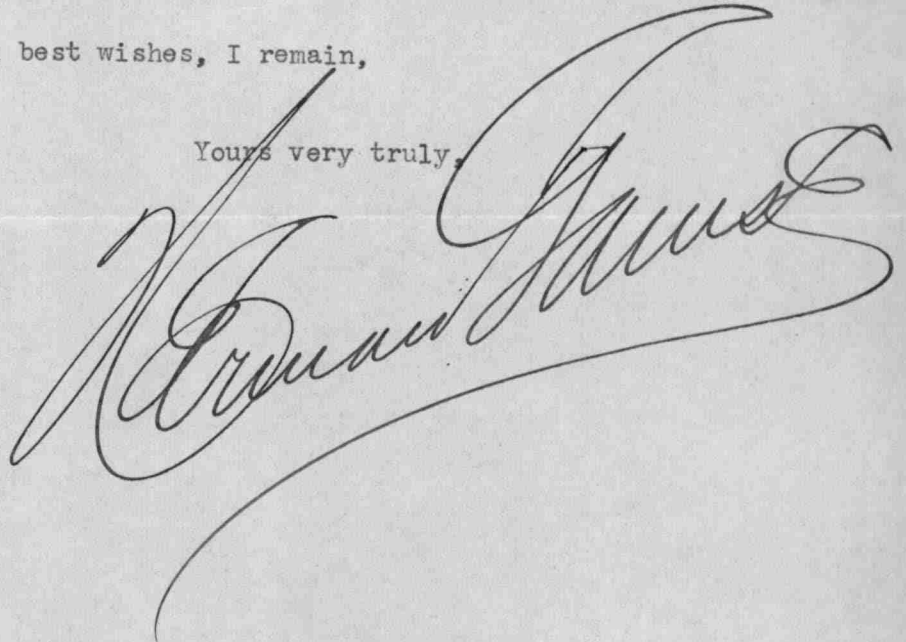 best wishes, I remain,
Yours very truly,
Herman